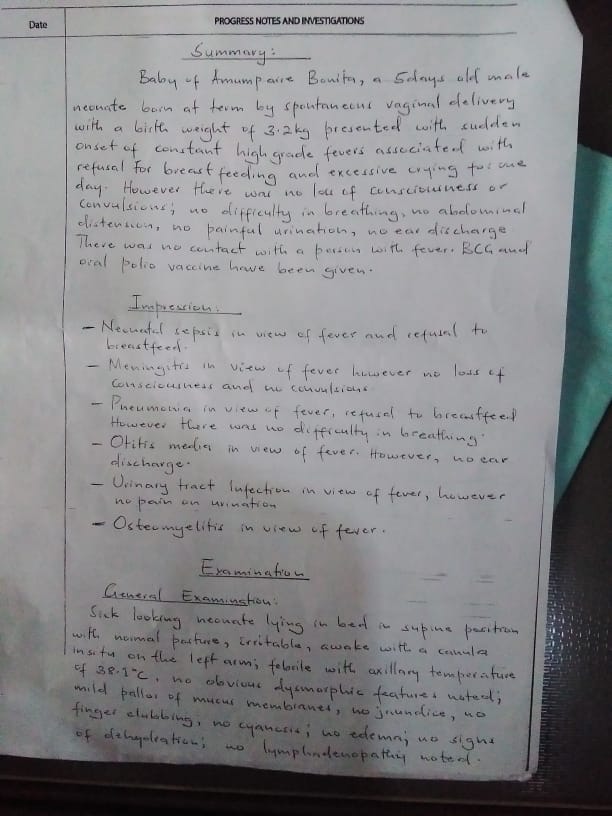 Date
PROGRESS NOTES AND INVESTIGATIONS
Summary:
Baby of Amumpaire Bonita, a 5days old male
neonate born at term by spontaneous vaginal delivery
with a birth weight of 3.2kg presented with sudden
onset of constant high grade fevers associated with
refusal for breast feeding and excessive crying for one
day. However there was no loss of consciousness or
convulsions; no difficulty in breathing, no abdominal
distension, no painful urination, no ear discharge
There was no contact with a person with fever. BCG and
oral polio vaccine have been given.
Impression:
- Neonatal sepsis in view of fever and refusal to
breastfeed.
- Meningitis in view of fever however no loss of
consciousness and no convulsions
- Pneumonia in view of fever, refusal to breastfeed
However there was no difficulty in breathing.
- Otitis media in view of fever. However, no ear
discharge.
- Urinary tract Infection in view of fever, however
no pain on urination
- Osteomyelitis in view of fever.
Examination
General Examination:
Sick looking neonate lying in bed in supine position
with normal posture, irritable, awake with a canula
insitu on the left arm; febrile with axillary temperature
of 38.1°C, no obvious dysmorphic features noted;
mild pallor of mucus membranes, no jaundice, no
finger clubbing, no cyanosis; no edema; no signs
of dehydration; no lymphadenopathy noted.